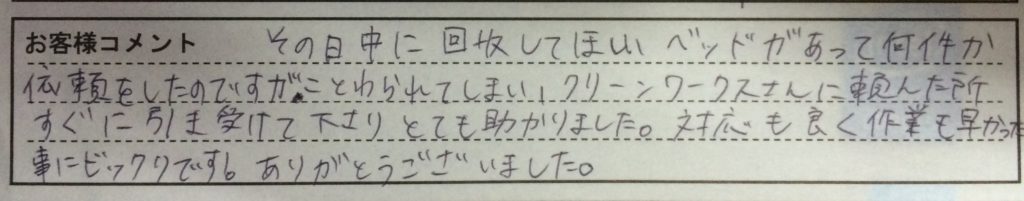 お客様コメント その日中に回収してほしいベッドがあって何件か
依頼をしたのですが、ことわられてしまい、クリーンワークスさんに頼んだ所
すぐに引き受けて下さりとても助かりました。対応も良く作業も早かった
事にビックリです。ありがとうございました。